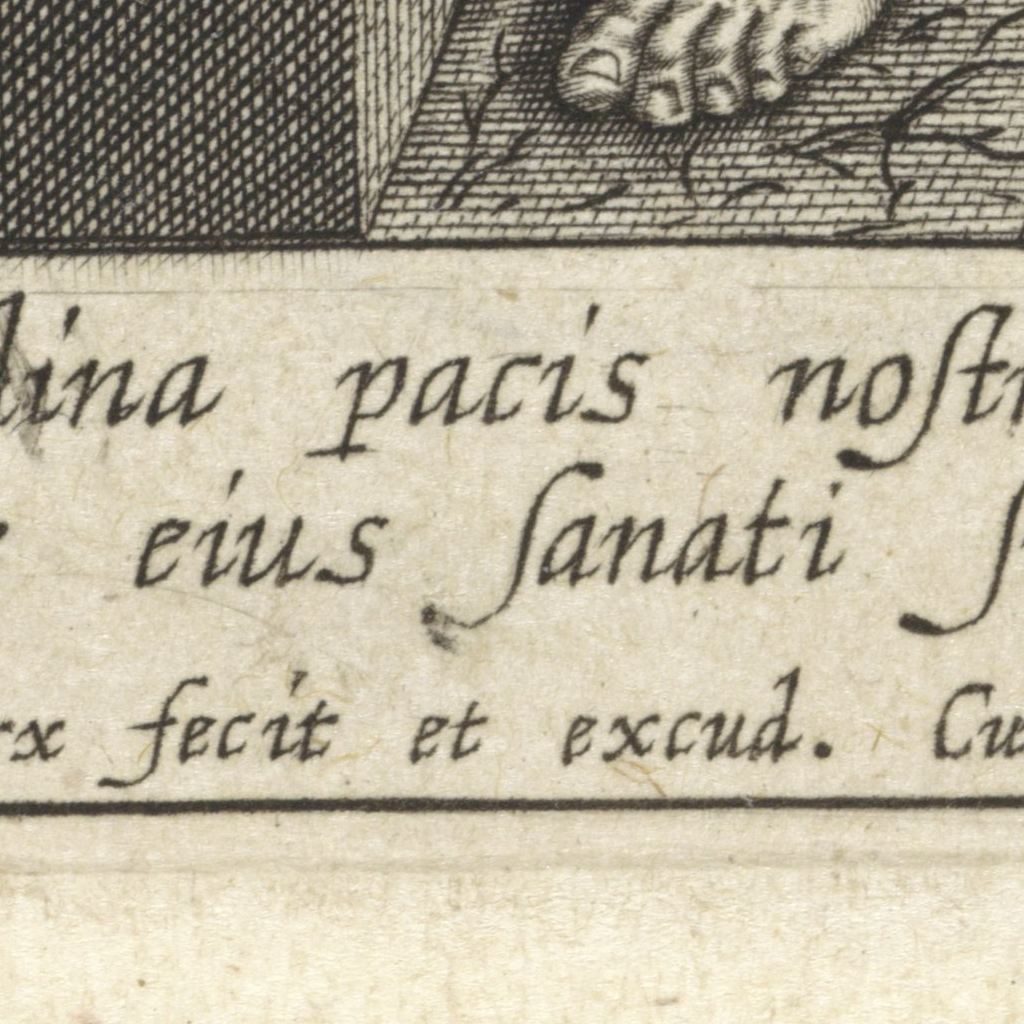 lina pacis noſtr
eius ſanati ſ
rx fecit et excud. Cu